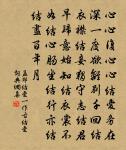 心心復心心結愛務在
深一度欲離別千回結
衣襟結妾獨守志結君
早歸意始知結衣裳不
如結心腸坐結行亦結
結盡百年月
孟郊結愛一作古結愛
詞典網集